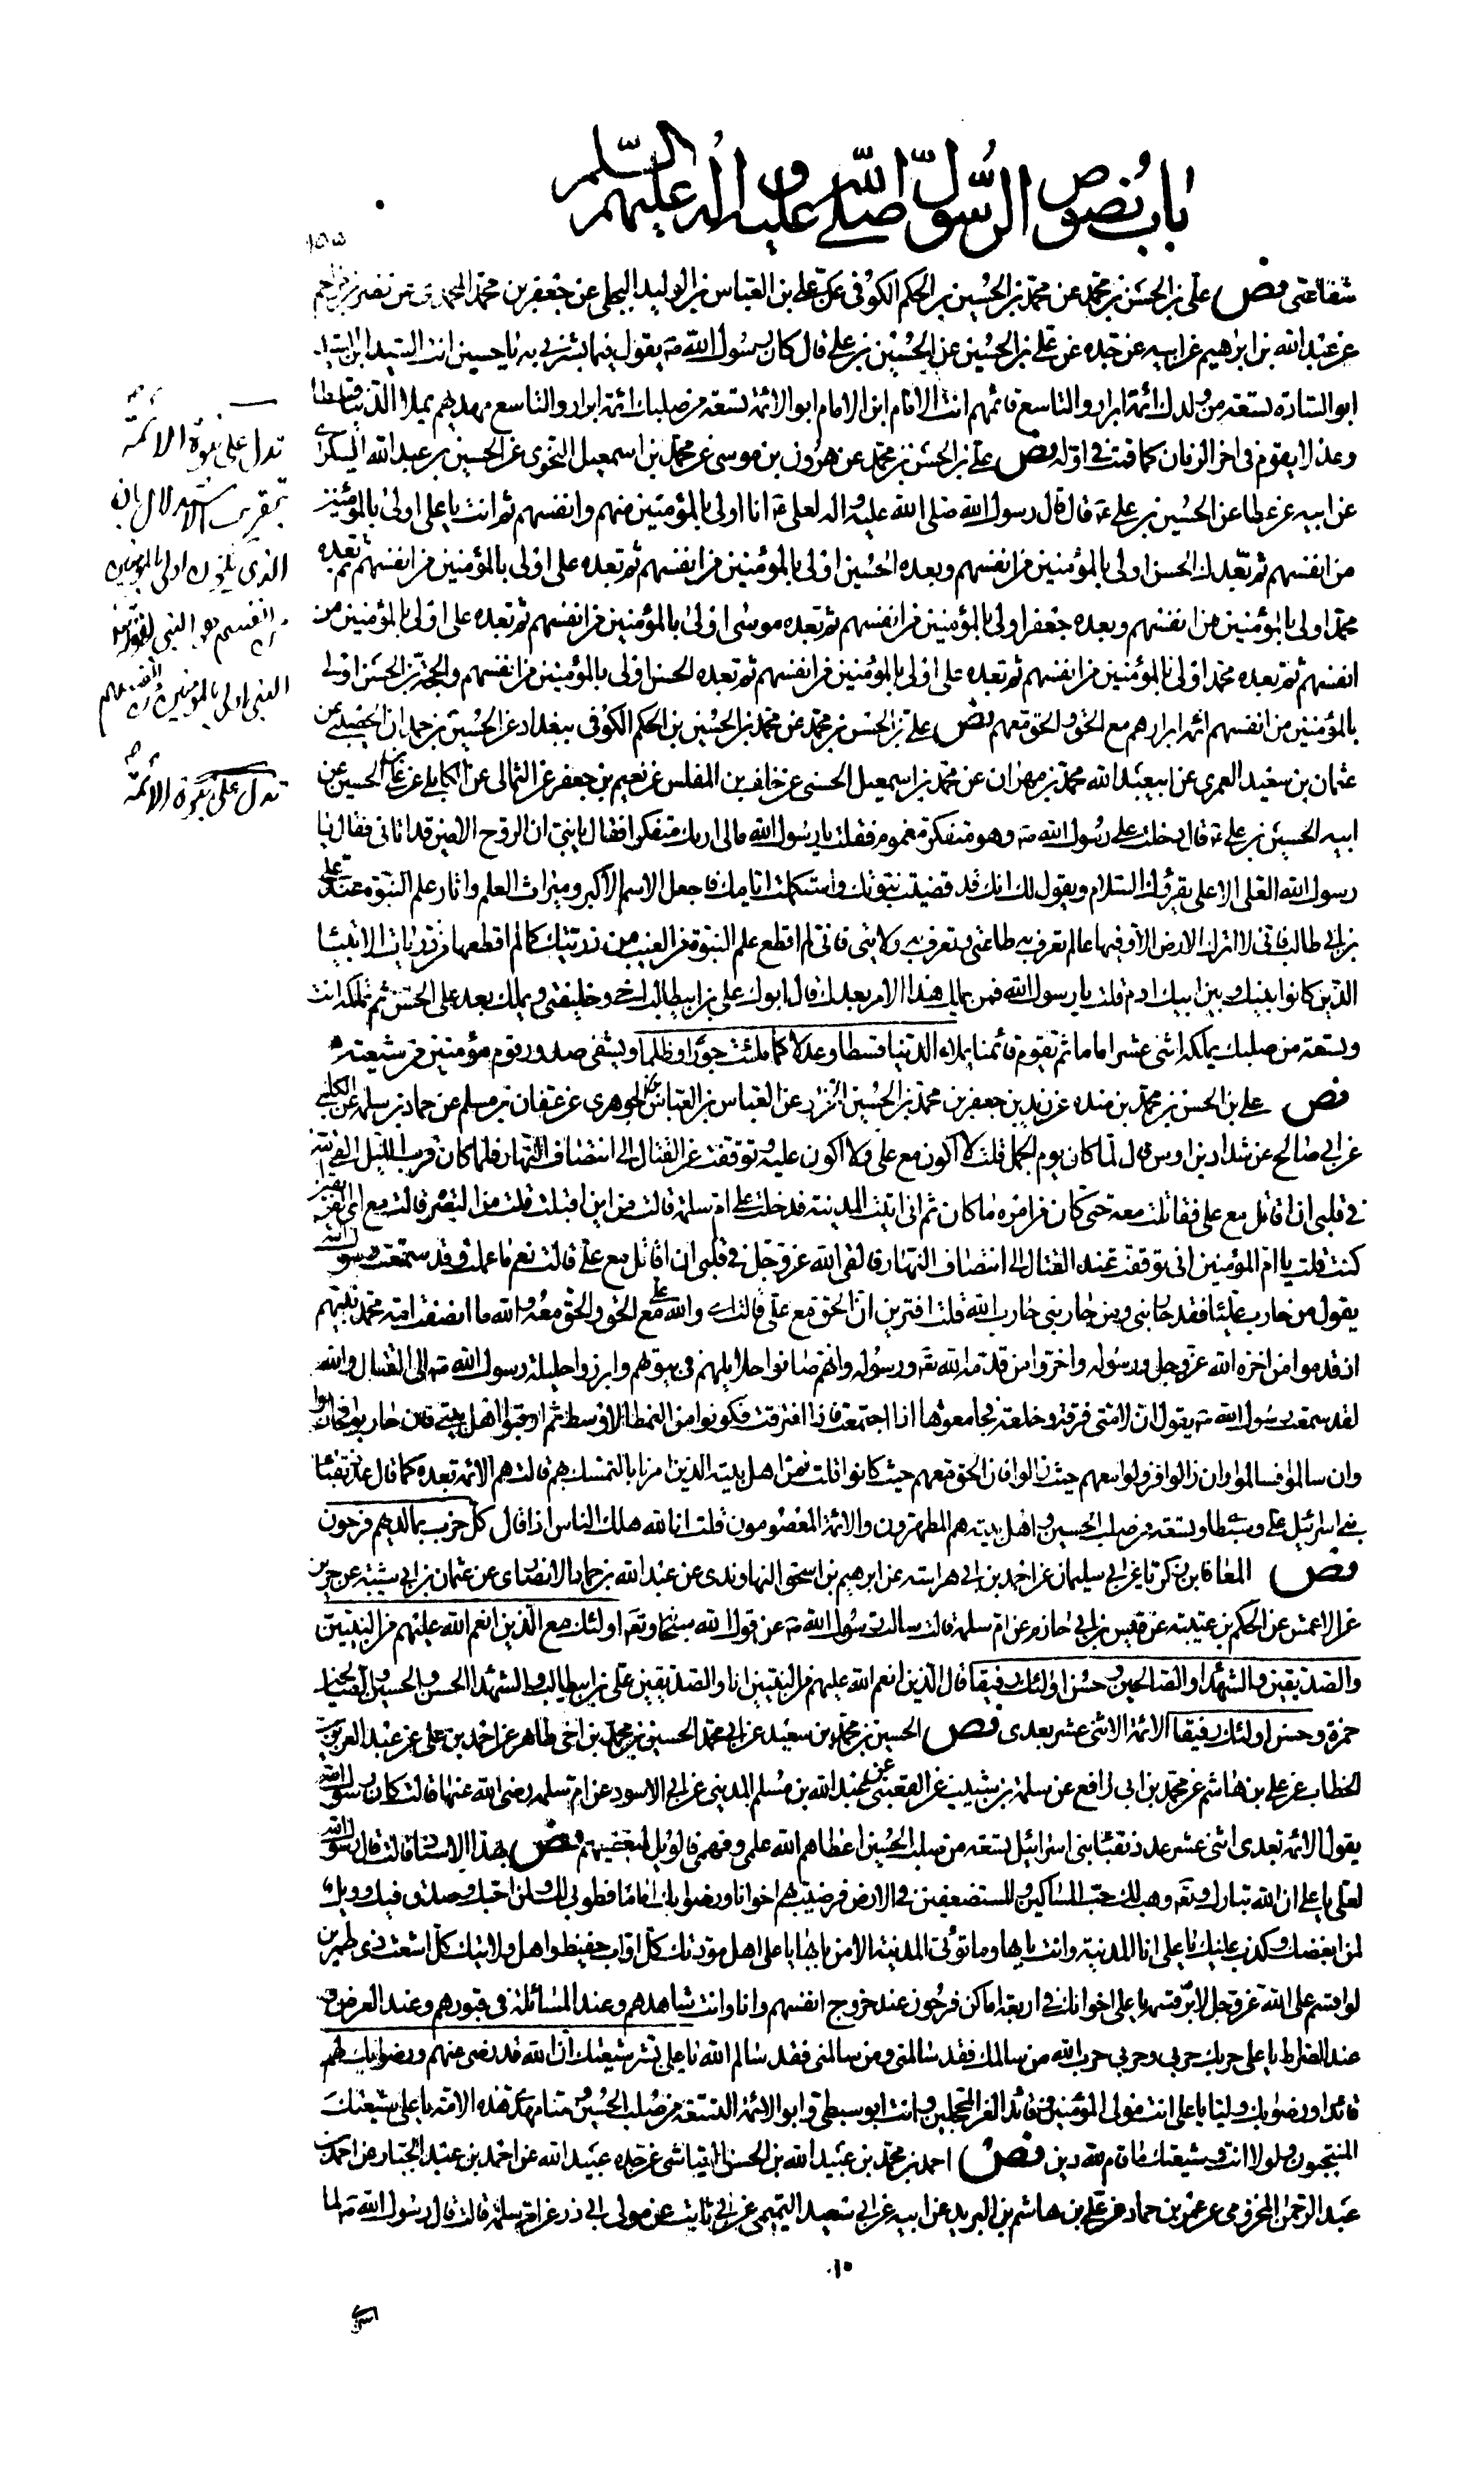 باب نصوص الرسول صلى الله عليه و اله عليهم السلم
شفاعتى نص على بن الحسن بن محمد عن محمد بن الحسين بن الحكم الكوفى عن على بن العباس بن الوليد البجلى عن جعفر بن محمد المحمدى عن نصر بن مزاحم
عن عبد الله بن ابرهيم عن ابيه عن جده عن على بن الحسين عن الحسين بن على قال كان رسول الله ص يقول فيما بشرنى به يا حسين انت السيد ابن السيد
ابو السادة تسعة من ولدك ائمة ابرار والتاسع قائمهم انت الامام ابن الامام ابو الائمة تسعة من صلبك ائمة ابرار والتاسع مهديهم يملا الدنيا قسطا
وعدلا يقوم فى اخر الزمان كما قمت فى اوله نص على بن الحسن بن محمد عن هرون بن موسى عن محمد بن اسمعيل النحوى عن الحسين بن عبد الله السكرى
عن ابيه عن عطا عن الحسين بن على ع قال قال رسول الله صلى الله عليه واله لعلى ع انا اولى بالمؤمنين منهم وانفسهم ثم انت يا على اولى بالمؤمنين
من انفسهم ثم بعدك الحسن اولى بالمؤمنين من انفسهم وبعده الحسين اولى بالمؤمنين من انفسهم ثم بعده على اولى بالمؤمنين من انفسهم ثم بعده
محمد اولى بالمؤمنين من انفسهم وبعده جعفر اولى بالمؤمنين من انفسهم ثم بعده موسى اولى بالمؤمنين من انفسهم ثم بعده على اولى بالمؤمنين من
انفسهم ثم بعده محمد اولى بالمؤمنين من انفسهم ثم بعده على اولى بالمؤمنين من انفسهم ثم بعده الحسن اولى بالمؤمنين من انفسهم والحجة بن الحسن اولى
بالمؤمنين من انفسهم ائمة ابرار هم مع الحق والحق معهم نص على بن الحسن بن محمد عن محمد بن الحسين بن الحكم الكوفى ببغداد عن الحسين بن حمدان الحضينى عن
عثمان بن سعيد العمرى عن ابيعبد الله محمد بن مهران عن محمد بن اسمعيل الحسنى عن خلف بن المفلس عن نعيم بن جعفر عن الثمالى عن الكابلى عن على بن الحسين عن
ابيه الحسين بن على ع قال دخلت على رسول الله ص وهو متفكر مغموم فقلت يا رسول الله مالى اريك متفكرا فقال يا بنى ان الروح الامين قد اتانى فقال يا
رسول الله العلى الاعلى يقرئك السلام ويقول لك انك قد قضيت نبوتك واستكملت ايامك فاجعل الاسم الاكبر وميراث العلم واثار علم النبوة عند على
بن ابى طالب فانى لا اترك الارض الا وفيها عالم تعرف به طاعتى وتعرف به ولايتى فانى لم اقطع علم النبوة من الغيب من ذريتك كما لم اقطعها من ذريات الانبيا
الذين كانوا بينك وبين ابيك ادم قلت يا رسول الله فمن يملك هذا الامر بعدك قال ابوك على بن ابيطالب اخى وخليفتى ويملك بعد على الحسن ثم تملكه انت
وتسعة من صلبك يملكه اثنى عشر اماما ثم يقوم قائمنا يملاء الدنيا قسطا وعدلا كما ملئت جورا وظلما ويشفى صدور قوم مؤمنين من شيعته
نص على بن الحسن بن محمد بن منده عن زيد بن جعفر بن محمد بن الحسين الخزاز عن العباس بن العباس الجوهرى عن عفان بن مسلم عن حماد بن سلمة عن الكلبى
عن ابى صالح عن شداد بن اوس قال لما كان يوم الجمل قلت لا اكون مع على ولا اكون عليه وتوقفت عن القتال الى انتصاف النهار فلما كان قرب الليل القى الله
فى قلبى ان اقاتل مع على فقاتلت معه حتى كان من امره ما كان ثم انى اتيت المدينة فدخلت على ام سلمة قالت من اين اقبلت قلت من البصرة قالت مع اى الفريقين
كنت قلت يا ام المؤمنين انى توقفت عند القتال الى انتصاف النهار فالقى الله عز وجل فى قلبى ان اقاتل مع على قالت نعم ما عملت وقد سمعت رسول الله
يقول من حارب عليا فقد حاربنى ومن حاربنى حارب الله قلت افترين ان الحق مع على قالت اى والله على مع الحق والحق معه والله ما انصفت امة محمد نبيهم
اذ قدموا من اخره الله عز وجل ورسوله واخروا من قدمه الله تعه ورسوله وانهم صانوا حلايلهم فى بيوتهم وابرزوا حليلة رسول الله ص الى القتال والله
لقد سمعت رسول الله ص يقول ان لامتى فرقة وخلعة فجامعوها اذا اجتمعت فاذا افترقت فكونوا من النمط الاوسط ثم ارقبوا اهل بيتى فان حاربوا فحاربوا
وان سالموا فسالموا وان زالوا فزولوا معهم حيث زالوا فان الحق معهم حيث كانوا قلت فمن اهل بيته الذين امرنا بالتمسك بهم قالت هم الائمة بعده كما قال عدد نقباء
بنى اسرائيل على وسبطاه وتسعة من صلب الحسين اهل بيته هم المطهرون والائمة المعصومون قلت انا لله هلك الناس اذا قال كل حزب بما لديهم فرحون
نص المعافا بن زكريا عن ابى سليمان عن احمد بن ابى هراسة عن ابرهيم بن اسحق النهاوندى عن عبد الله بن حماد الانصارى عن عثمان بن ابى شيبة عن حريز
عن الاعمش عن الحكم بن عتيبة عن قيس بن ابى حازم عن ام سلمة قالت سالت رسول الله ص عن قول الله سبحانه وتعه اولئك مع الذين انعم الله عليهم من النبيين
والصديقين والشهداء والصالحين وحسن اولئك رفيقا قال الذين انعم الله عليهم من النبيين انا والصديقين على بن ابيطالب والشهدا الحسن والحسين والصالحين
حمزة وحسن اولئك رفيقا الائمة الاثنى عشر بعدى نص الحسين بن محمد بن سعيد عن ابى محمد الحسين بن محمد بن اخى طاهر عن احمد بن على عن عبد العزيز بن
الخطاب عن على بن هاشم عن محمد بن ابى رافع عن سلمة بن شبيب عن القعنبى عن عبد الله بن مسلم المدينى عن ابى الاسود عن ام سلمة رضى الله عنها قالت كان رسول الله
يقول الائمة بعدى اثنى عشر عدد نقباء بنى اسرائيل تسعة من صلب الحسين اعطاهم الله علمى وفهمى فالويل لمبغضيهم نص بهذا الاسناد قالت قال رسول الله
لعلى يا على ان الله تبارك وتعه وهب لك حب المساكين والمستضعفين فى الارض فرضيت بهم اخوانا ورضوا بك اماما فطوبى لك ولمن احبك وصدق فيك وويل
لمن ابغضك وكذب عليك يا على انا المدينة وانت بابها وما تؤتى المدينة الا من بابها يا على اهل مودتك كل اواب حفيظ واهل ولايتك كل اشعث ذى طمرين
لو اقسم على الله عز وجل لابر قسمه يا على اخوانك فى اربعة اماكن فرحون عند خروج انفسهم وانا وانت شاهدهم وعند المسائلة فى قبورهم وعند العرض و
عند الصراط يا على حربك حربى وحربى حرب الله من سالمك فقد سالمنى ومن سالمنى فقد سالم الله يا على بشر شيعتك ان الله قد رضى عنهم ورضوا بك لهم
قائدا ورضوا بك وليا يا على انت مولى المؤمنين وقائد الغر المحجلين وانت ابو سبطى وابو الائمة التسعة من صلب الحسين ومنا مهدى هذه الامة يا على شيعتك
المنتجبون ولولا انت وشيعتك ما قام لله دين نص احمد بن محمد بن عبيد الله بن الحسن العياشى عن جده عبيد الله عن احمد بن عبد الجبار عن احمد بن
عبد الرحمن المخزومى عن عمر بن حماد عن على بن هاشم بن البريد عن ابيه عن ابى سعيد التميمى عن ابى ثابت عن مولى ابى ذر عن ام سلمة قالت قال رسول الله ص لما
تدل على نبوة الائمة
بتقريب الاستدلال بان
الذى يكون اولى بالمؤمنين
من انفسهم هو النبى لقوله
النبى اولى بالمؤمنين من انفسهم
تدل على نبوة الائمة